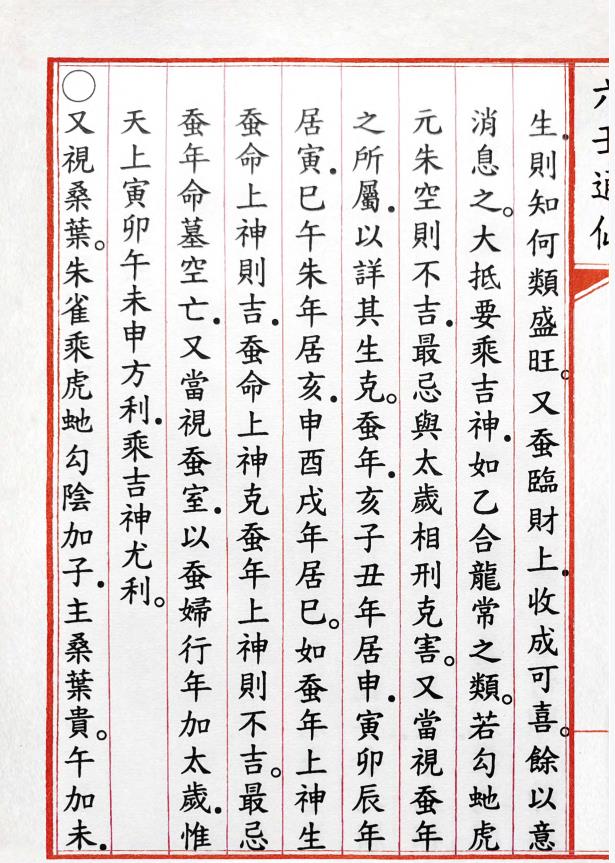 六壬通仙
生．則知何類盛旺。又蚕臨財上．收成可喜。餘以意
消息之。大抵要乘吉神．如乙合龍常之類。若勾虵虎
元朱空則不吉．最忌與太歲相刑克害。又當視蚕年
之所屬．以詳其生克。蚕年．亥子丑年居申．寅卯辰年
居寅．巳午朱年居亥．申酉戌年居巳。如蚕年上神生
蚕命上神則吉．蚕命上神克蚕年上神則不吉。最忌
蚕年命墓空亡．又當視蚕室．以蚕婦行年加太歲．惟
天上寅卯午未申方利．乘吉神尤利。
〇又視桑葉。朱雀乘虎虵勾陰加子．主桑葉貴。午加未．